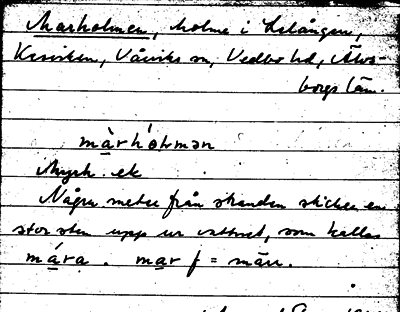 Marholmen, holme i Lelången,
Kesviken, Vårviks sn, Vedbo hd, Älvs-
borgs län.
màrhólmən
Myck. ek
Några meter från stranden sticker en
stor sten upp ur vattnet, som kallas
mára. mar f = märr.